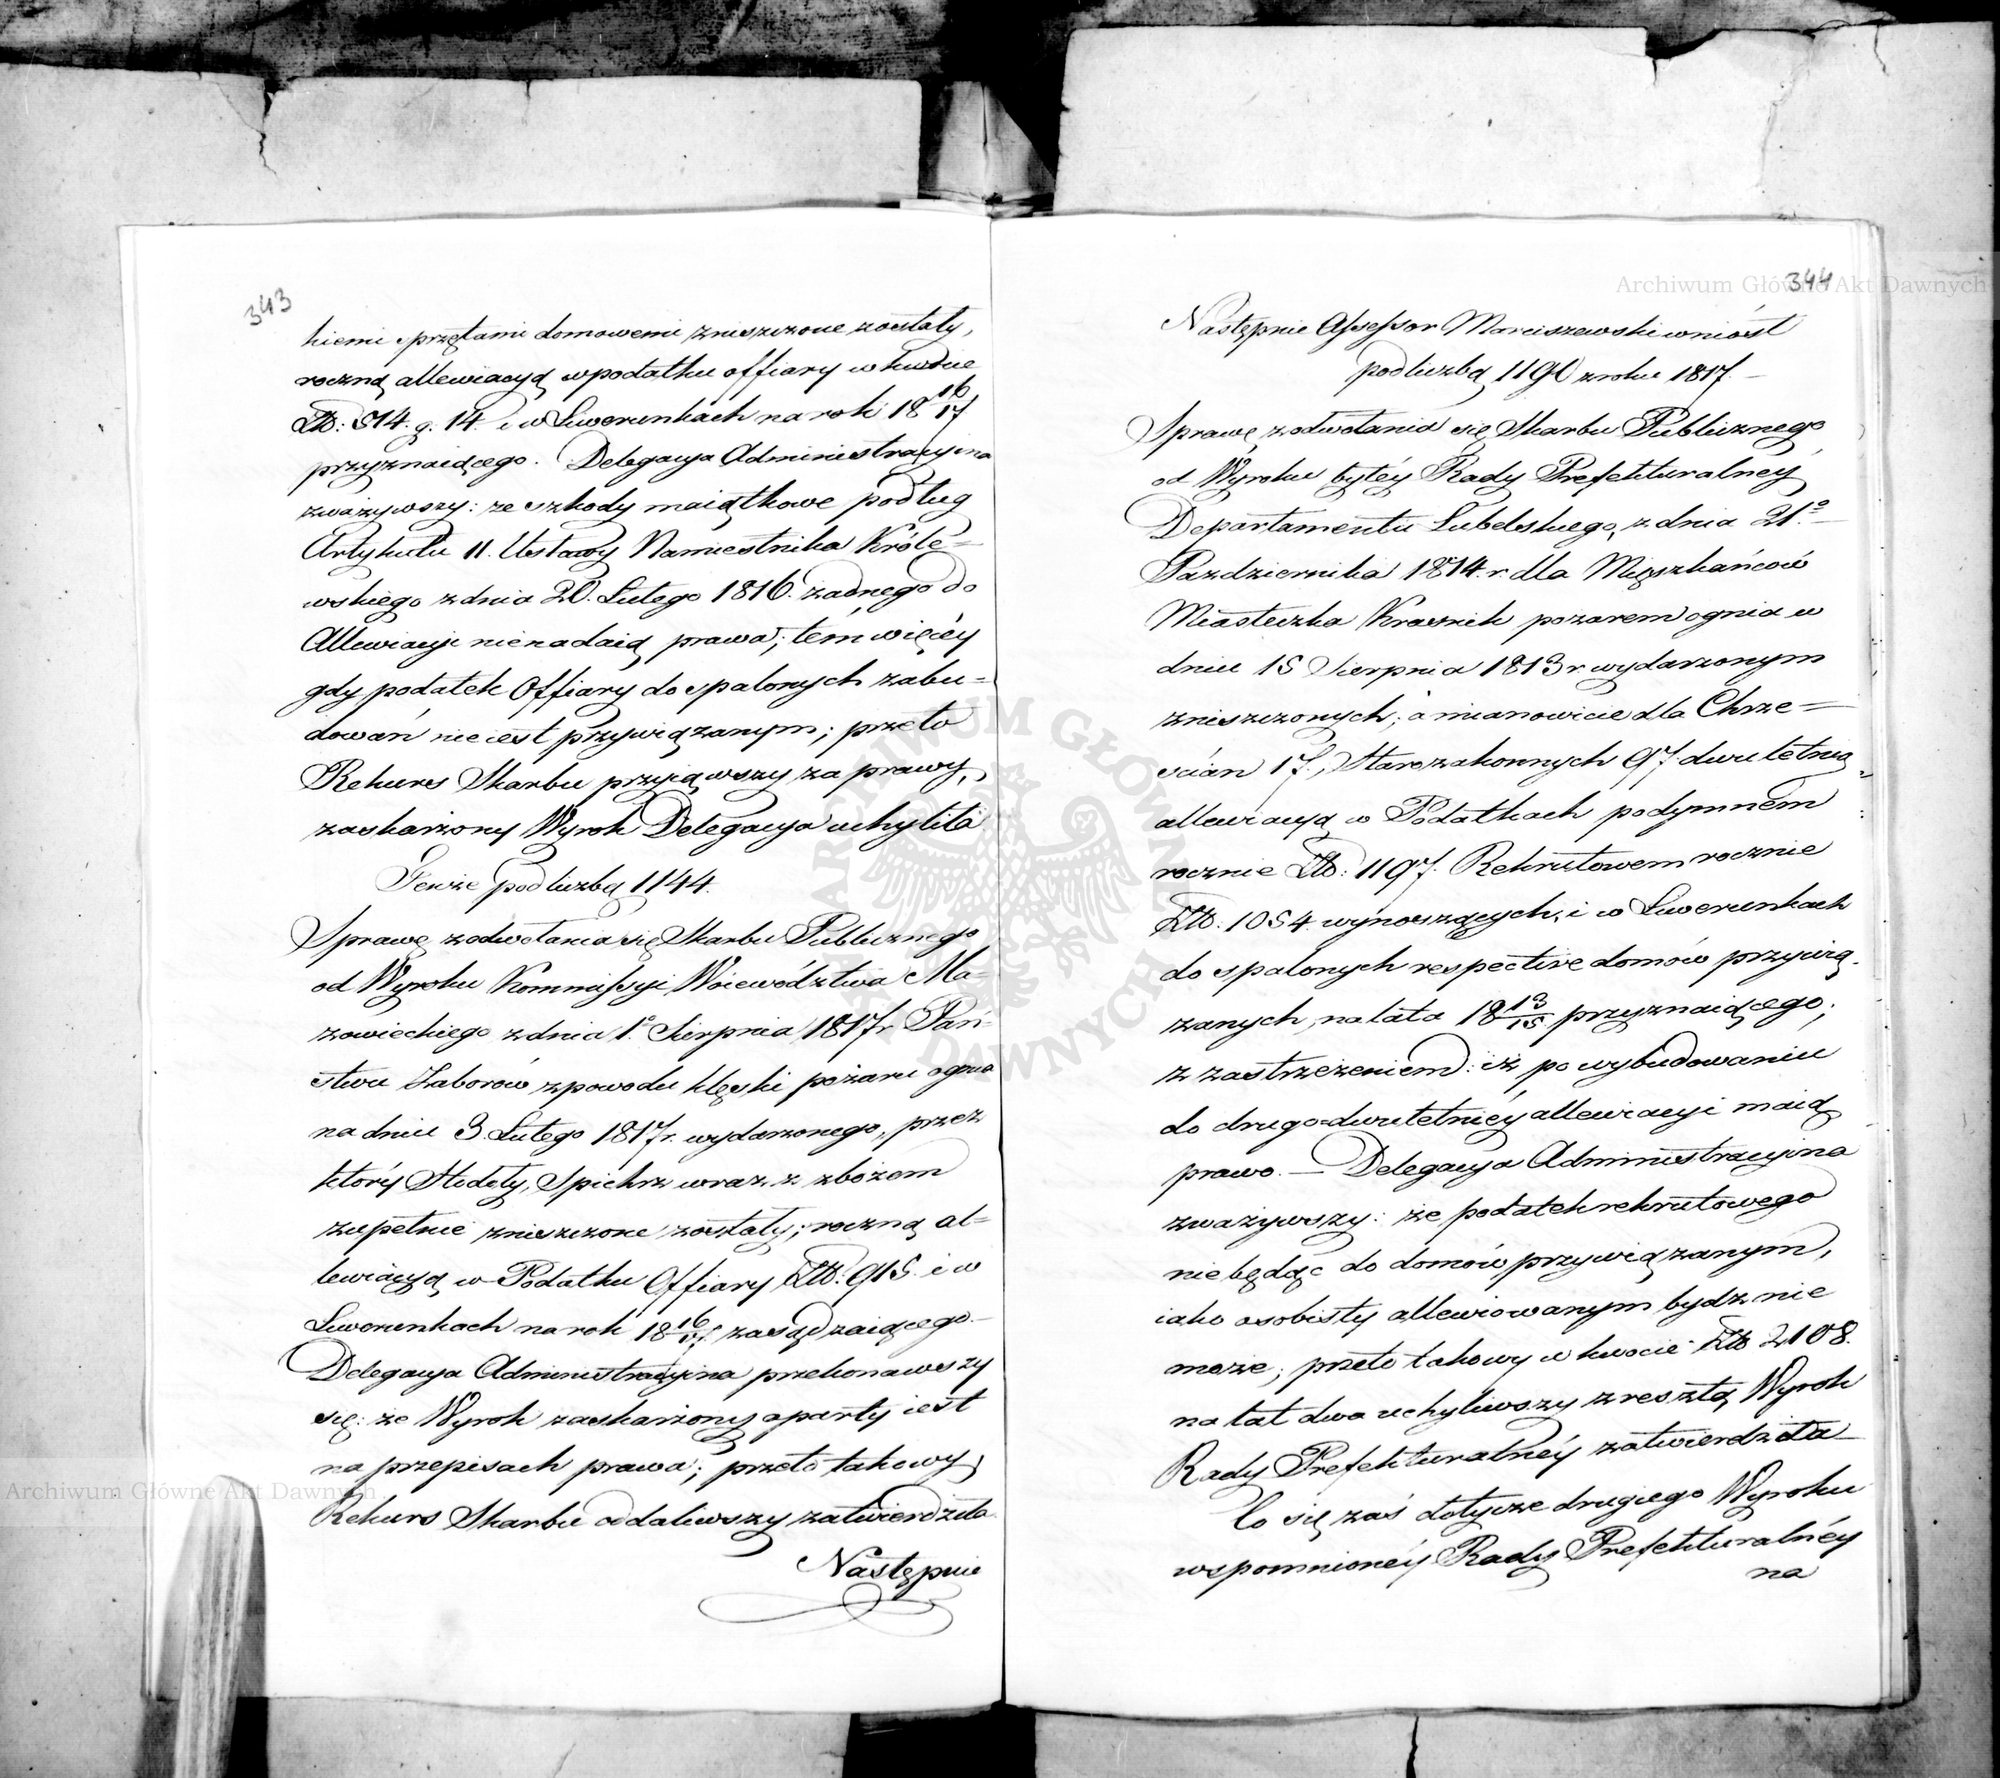 343
kiemi sprzętami domowemi zniszczone zostały,
roczną allewiacyą w podatku offiary w kwocie
Złł: 514. g. 14. i w Liwerunkach na rok 18 16/17
przyznaiącego. Delegacya Administracyina
zważywszy: że szkody maiątkowe podług
Artykułu 11. Ustawy Namiestnika Króle=
wskiego z dnia 20. Lutego 1816. żadnego do
Allewiacyi nie nadaią prawa; tém więcéy
gdy podatek Offiary do spalonych zabu=
dowań nie iest przywiązanym; przeto
Rekurs Skarbu przyiąwszy za prawy,
zaskarżony Wyrok Delegacya uchyliła
Tenże pod liczbą 1144.
Sprawę z odwołania się Skarbu Publicznego
od Wyroku Kommissyi Woiewództwa Ma=
zowieckiego z dnia 1o Sierpnia 1817r Pań=
stwu Zaborów z powodu klęski pożaru ognia
na dniu 3. Lutego 1817r. wydarzonego, przez
który Stodoły, Spichrz wraz z zbożem
zupełnie zniszczone zostały; roczną al=
lewiacyą w Podatku Offiary Złł: 915. i w
Liworunkach na rok 18 16/17 zasądzaiącego.
Delegacya Administracyina przekonawszy
się: że Wyrok zaskarżony oparty iest
na przepisach prawa; przeto takowy,
Rekurs Skarbu oddaliwszy zatwierdziła.
Następnie
344
Następnie Assessor Marciszewski wniósł
pod liczbą 1190 z roku 1817.
Sprawę z odwołania się Skarbu Publicznego
od Wyroku byłéy Rady Prefekturalnéy
Departamentu Lubelskiego, z dnia 21.o
Pazdziernika 1814.r. dla Mięszkańców
Miasteczka Krasnik pożarem ognia w
dniu 15 Sierpnia 1813r wydarzonym
zniszczonych; a mianowicie dla Chrze=
ścian 17, Starozakonnych 97. dwuletnią
allewiacyą w Podatkach podymném
rocznie Złł: 1197. Rekrutowem rocznie
Złł: 1054. wynoszących, i w Liwerunkach
do spalonych respective domów przywią=
zanych, na lata 18 13/15 przyznaiącego;
z zastrzeżeniem: iż po wybudowaniu
do drugo=dwuletniéy allewiacyi maią
prawo. — Delegacya Administracyina
zważywszy: że podatek rekrutowego
nie będąc do domów przywiązanym,
iako osobisty allewiowanym bydz nie
może; przeto takowy w kwocie Złł 2108.
na lat dwa uchyliwszy z resztą Wyrok
Rady Prefekturalnéy zatwierdziła
Co się zaś dotycze drugiego Wyroku
wspomnionéy Rady Prefekturalnéy
na
Archiwum Główne Akt Dawnych
Archiwum Główne Akt Dawnych
ARCHIWUM GŁÓWNE AKT DAWNYCH